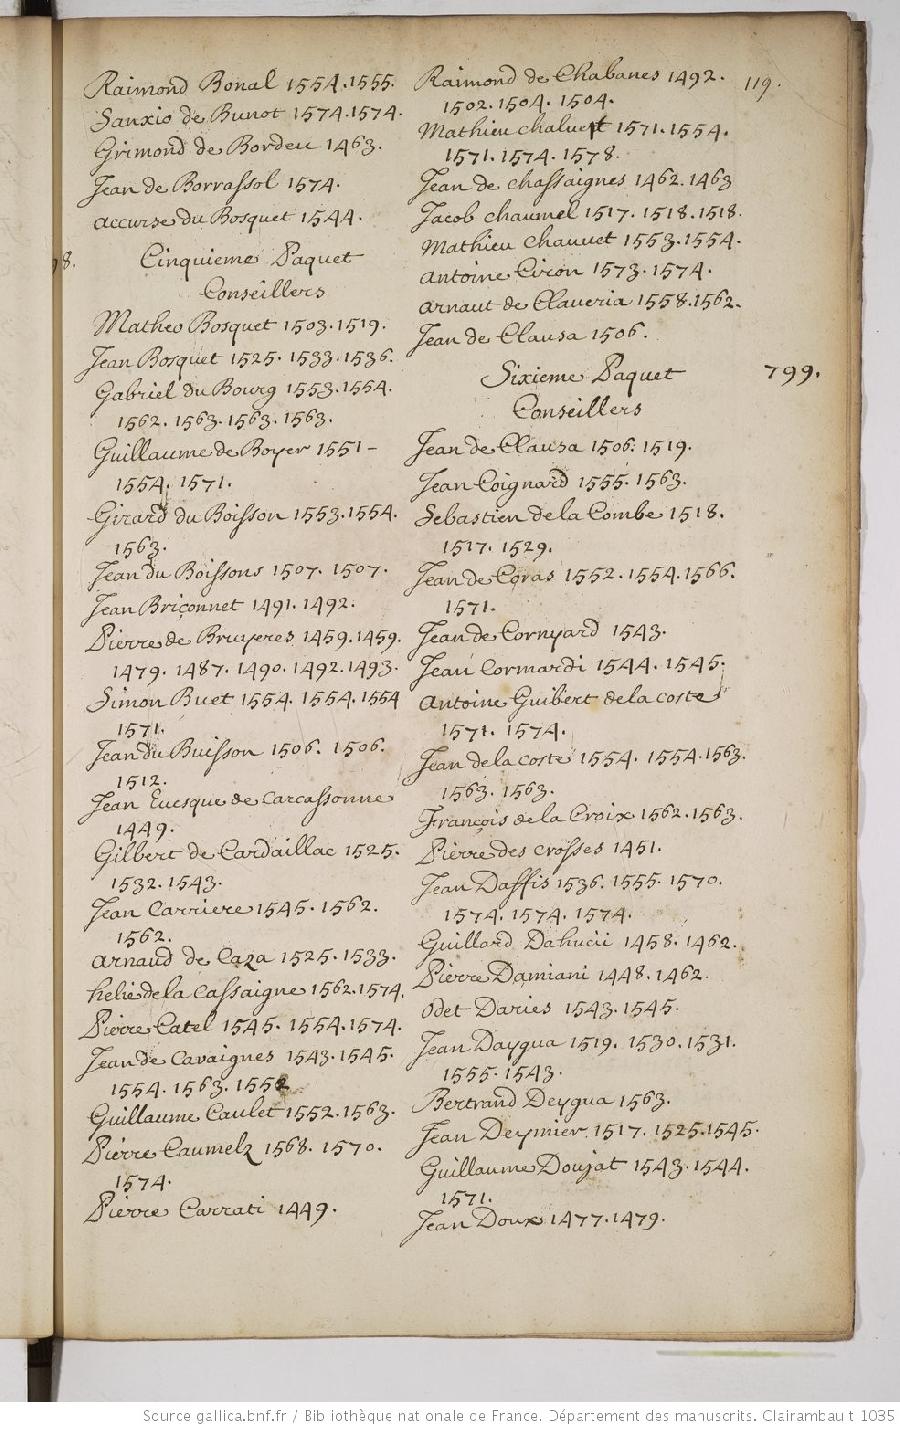 Raimond Bonal 1554.1555.
Sanxio de Bunot 1574.1574.
Grimond de Bordeu 1463.
Jean de Borrassol 1574.
accurse du Bosquet 1544.
Cinquieme Paquet
Conseillers
Matheo Bosquet 1503.1519.
Jean Bosquet 1525. 1533.1536.
Gabriel du Bourg 1553.1554.
1562. 1563. 1563. 1563.
Guillaume de Boyer 1551-
1554. 1571.
Girard du Boisson 1553.1554.
1563.
Jean du Boissons 1507. 1507.
Jean Briçonnet 1491. 1492.
Pierre de Bruyeres 1459.1459.
1479. 1487. 1490. 1492.1493.
Simon Buet 1554. 1554.1554
1571.
Jean du Buisson 1506. 1506.
1512.
Jean Evesque de Carcassonne
1449.
Gilbert de Cardaillac 1525.
1532. 1543.
Jean Carriere 1545. 1562.
1562.
arnaud de Caza 1525. 1533.
helie de la Cassaigne 1562.1574.
Pierre Catel 1545. 1554.1574.
Jean de Cavaignes 1543.1545.
1554. 1563. 1552
Guillaume Caulet 1552. 1563.
Pierre Caumelz 1568. 1570.
1574.
Pierre Carrati 1449.
Raimond de Chabanes 1492.
1502. 1504. 1504.
Mathieu chaluet 1571. 1554.
1571. 1574. 1578.
Jean de chassaignes 1462.1463
Jacob chaumel 1517. 1518.1518.
Mathieu Chauvet 1553.1554.
Antoine Ciron 1573. 1574.
arnaut de Claveria 1558.1562.
Jean de Clausa 1506.
119.
Sixieme Paquet
799.
Conseillers
Jean de Clausa 1506. 1519.
Jean Coignard 1555. 1563.
Sebastien de la Combe 1518.
1517. 1529.
Jean de Coras 1552. 1554.1566.
1571.
Jean de Cornyard 1543.
Jean Cormardi 1544. 1545.
Antoine Guibert de la coste
1571. 1574.
Jean de la coste 1554. 1554.1563.
1563. 1563.
François de la Croix 1562.1563.
Pierre des crosses 1451.
Jean Daffis 1536. 1555. 1570.
1574. 1574. 1574.
Guillard 1458. 1462.
Pierre Damiani 1448. 1462.
Odet Daries 1543. 1545.
Jean Daygua 1519. 1530.1531.
1555. 1543.
Bertrand Deygua 1563.
Jean Deymier 1517. 1525.1545.
Guillaume Doujat 1543. 1544.
1571.
Jean Doux 1477. 1479.
Source gallica.bnf.fr / Bibliothèque nationale de France. Département des manuscrits. Clairambault 1035